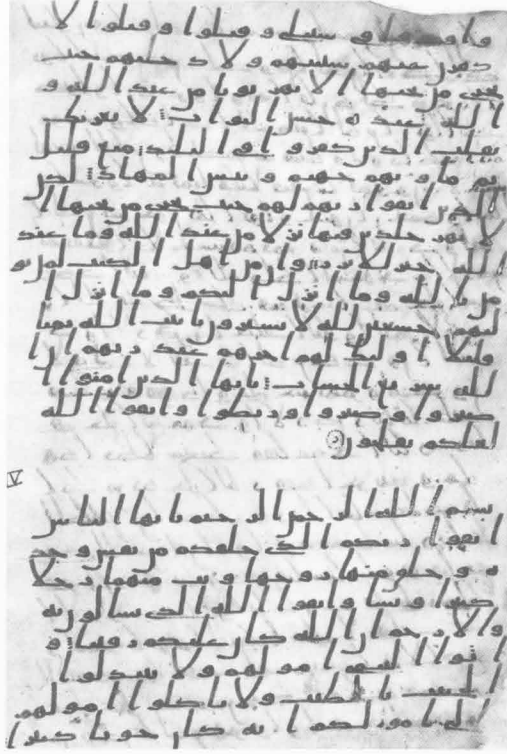 واوذوا في سبيلي وقتلوا وقتلوا لا
كفرن عنهم سيتهم ولا دخلنهم جنت
تجري من تحتها الانهر ثوبا من عند الله و
الله عنده حسن الثواب لا يغرنك
تقلب الذين كفروا في البلد متع قليل
ثم ماويهم جهنم وبيس المهاد لكن
الذين اتقوا ربهم لهم جنت تجري من تحتها ا
لانهر خلدين فيها نزلا من عند الله وما عند
الله خير للابرر وان من اهل الكتب لمن يو
من بالله وما انزل اليكم وما انزل ا
ليهم خشعين لله لا يشترون بايت الله ثمنا
قليلا اوليك لهم اجرهم عند ربهم ان ا
لله سريع الحساب يايها الذين امنوا ا
صبروا وصبروا وربطوا واتقوا الله
لعلكم تفلحون
V
بسم الله الرحمن الرحيم يايها الناس
اتقوا ربكم الذي خلقكم من نفس وحد
ه وخلق منها زوجها وبث منهما رجلا
كثيرا ونسا واتقوا الله الذي تسالون به
والارحم ان الله كان عليكم رقيبا و
اتوا اليتمى امولهم ولا تبدلوا
الخبيث بالطيب ولا تاكلوا امولهم
الى امولكم انه كان حوبا كبيرا